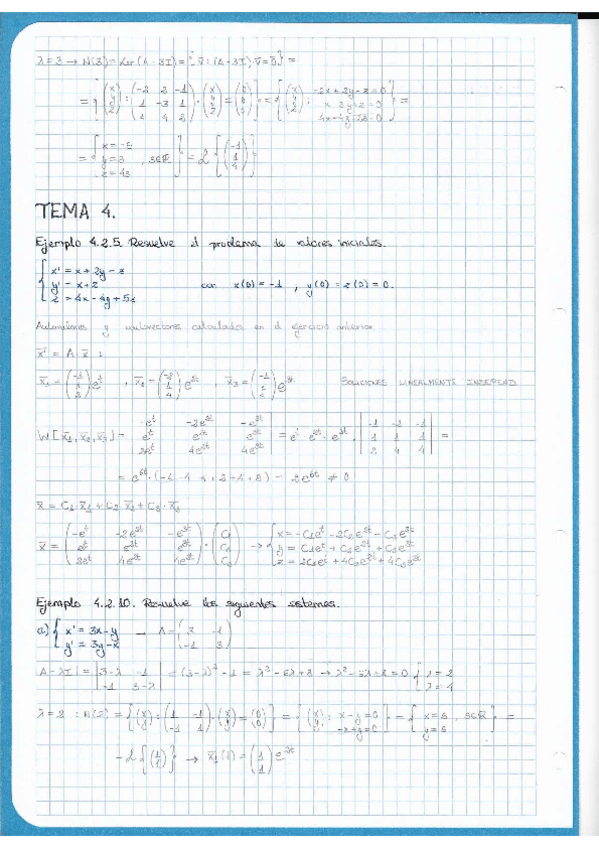 λ=3 → N(3) = Ker(A-3I) = { v̄ : (A-3I)·v̄ = 0̄ } =
= { (x y z) : (-2 2 -1 / 1 -3 1 / 4 -4 2) · (x y z) = (0 0 0) } = { (x y z) : -2x+2y-z=0 / x-3y+z=0 / 4x-4y+2z=0 } =
= { x=-s / y=s , s∈ℝ / z=4s } = L { (-1 1 4) }
TEMA 4.
Ejemplo 4.2.5. Resuelve el problema de valores iniciales.
x' = x+2y-z
y' = x+z con x(0)=-1 , y(0)=z(0)=0.
z' = 4x-4y+5z
Autovalores y autovectores calculados en el ejercicio anterior.
x̄' = A·x̄ :
x̄1 = (-1 1 2) e^t , x̄2 = (-2 1 4) e^2t , x̄3 = (-1 1 4) e^3t SOLUCIONES LINEALMENTE INDEPEND.
W[x̄1,x̄2,x̄3] = | -e^t -2e^2t -e^3t / e^t e^2t e^3t / 2e^t 4e^2t 4e^3t | = e^t·e^2t·e^3t · | -1 -2 -1 / 1 1 1 / 2 4 4 | =
= e^6t·(-4-4-4+2+4+8) = 2e^6t ≠ 0
x̄ = C1·x̄1 + C2·x̄2 + C3·x̄3
x̄ = (-e^t -2e^2t -e^3t / e^t e^2t e^3t / 2e^t 4e^2t 4e^3t) · (C1 C2 C3) → { x = -C1e^t - 2C2e^2t - C3e^3t / y = C1e^t + C2e^2t + C3e^3t / z = 2C1e^t + 4C2e^2t + 4C3e^3t
Ejemplo 4.2.10. Resuelve los siguientes sistemas.
a) { x' = 3x-y / y' = 3y-x → A = (3 -1 / -1 3)
|A-λI| = | 3-λ -1 / -1 3-λ | = (3-λ)² - 1 = λ² - 6λ + 8 → λ² - 6λ + 8 = 0 { λ=2 / λ=4
λ=2 : N(2) = { (x y) : (1 -1 / -1 1)·(x y) = (0 0) } = { (x y) : x-y=0 / -x+y=0 } = { x=s / y=s , s∈ℝ } =
= L { (1 1) } → x̄1(t) = (1 1) e^2t